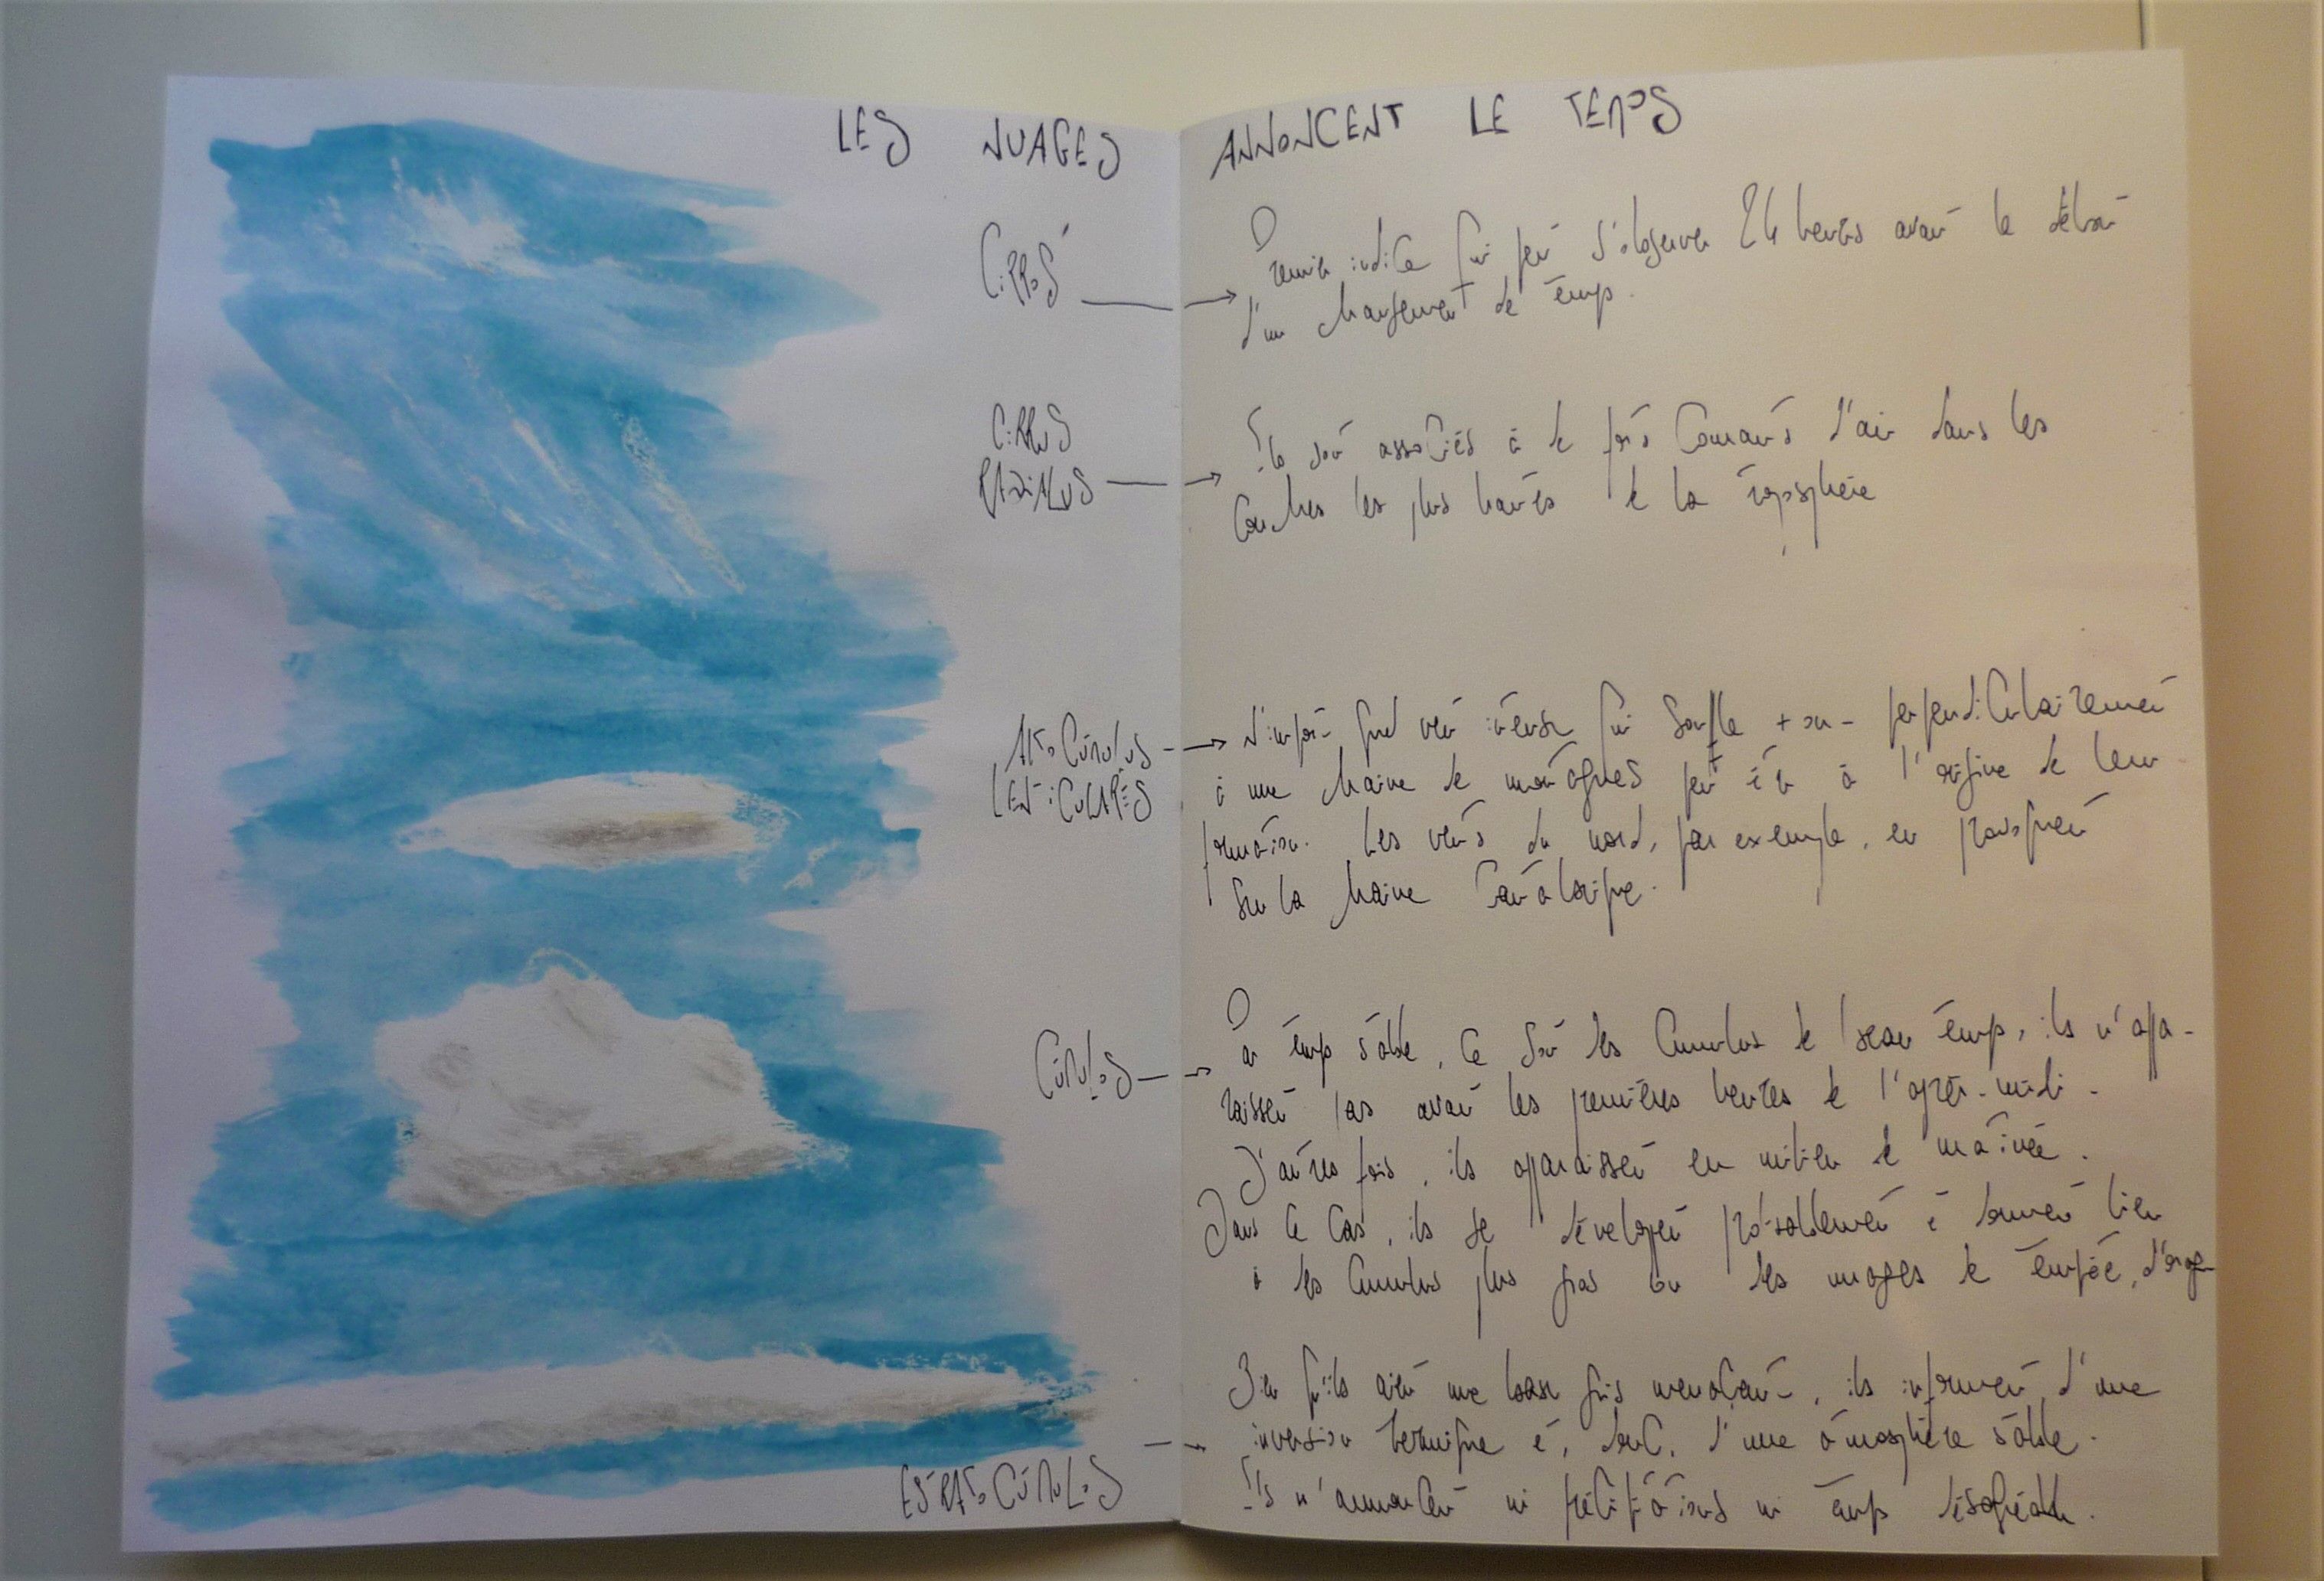 LES NUAGES ANNONCENT LE TEMPS
CIRROS
Premier indice qui peut s'observer 24 heures avant le début
d'un changement de temps.
CIRRUS
RADIALUS
Ils sont associés à de forts courants d'air dans les
couches les plus hautes de la troposphère
ALTOCÚMULUS
LENTICULARES
N'importe quel vent intense qui souffle + ou - perpendiculairement
à une chaine de montagnes peut être à l'origine de leur
formation. Les vents du nord, par exemple, en provoquent
sur la chaine Cantabrique.
CÚMULOS
Par temps stable, ce sont les cumulus de beau temps, ils n'appa-
raissent pas avant les premières heures de l'après-midi.
D'autres fois, ils apparaissent en milieu de matinée.
Dans ce cas, ils se développent probablement et donnent lieu
à des cumulus plus gros ou des nuages de tempête, d'orage
Bien qu'ils aient une base gris menaçante, ils informent d'une
inversion thermique et, donc, d'une atmosphère stable.
Ils n'annoncent ni précipitations ni temps désagréable.
ESTRATOCÚMULOS